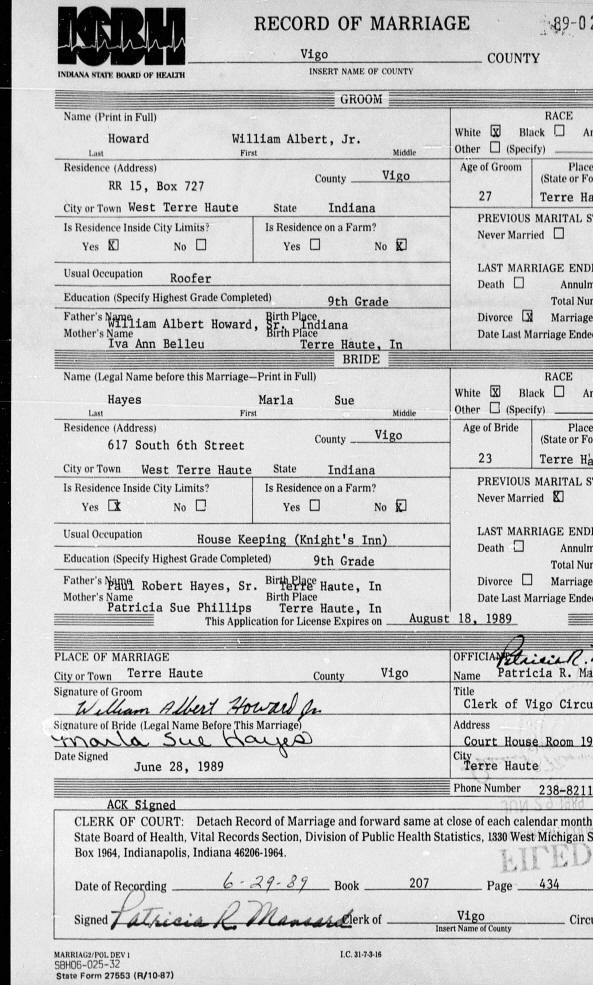 ISBH
RECORD OF MARRIAGE
89-02
Vigo COUNTY
INDIANA STATE BOARD OF HEALTH
INSERT NAME OF COUNTY
GROOM
Name (Print in Full) RACE
Howard William Albert, Jr. White X Black
Last First Middle Other (Specify)
Residence (Address) County Vigo Age of Groom Place
RR 15, Box 727 (State or Fo
City or Town West Terre Haute State Indiana 27 Terre Ha
Is Residence Inside City Limits? Is Residence on a Farm? PREVIOUS MARITAL S
Yes X No Yes No X Never Married
Usual Occupation Roofer LAST MARRIAGE END
Death Annulm
Education (Specify Highest Grade Completed) 9th Grade Total Nu
Father's Name William Albert Howard, Sr. Birth Place Indiana Divorce X Marriage
Mother's Name Iva Ann Belleu Birth Place Terre Haute, In Date Last Marriage Ende
BRIDE
Name (Legal Name before this Marriage—Print in Full) RACE
Hayes Marla Sue White X Black
Last First Middle Other (Specify)
Residence (Address) County Vigo Age of Bride Place
617 South 6th Street (State or Fo
City or Town West Terre Haute State Indiana 23 Terre Ha
Is Residence Inside City Limits? Is Residence on a Farm? PREVIOUS MARITAL S
Yes X No Yes No X Never Married X
Usual Occupation House Keeping (Knight's Inn) LAST MARRIAGE END
Death Annulm
Education (Specify Highest Grade Completed) 9th Grade Total Nu
Father's Name Paul Robert Hayes, Sr. Birth Place Terre Haute, In Divorce Marriage
Mother's Name Patricia Sue Phillips Birth Place Terre Haute, In Date Last Marriage Ende
This Application for License Expires on August 18, 1989
PLACE OF MARRIAGE OFFICIANT Patricia R.
City or Town Terre Haute County Vigo Name Patricia R. Ma
Signature of Groom Title
William Albert Howard Jr Clerk of Vigo Circu
Signature of Bride (Legal Name Before This Marriage) Address
Marla Sue Hayes Court House Room 19
Date Signed City
June 28, 1989 Terre Haute
Phone Number 238-8211
ACK Signed
CLERK OF COURT: Detach Record of Marriage and forward same at close of each calendar month
State Board of Health, Vital Records Section, Division of Public Health Statistics, 1330 West Michigan S
Box 1964, Indianapolis, Indiana 46206-1964.
FILED
Date of Recording 6-29-89 Book 207 Page 434
Signed Patricia R. Mansard Clerk of Vigo Circu
Insert Name of County
MARRIAG2/POL DEV 1 I.C. 31-7-3-16
SBH06-025-32
State Form 27553 (R/10-87)